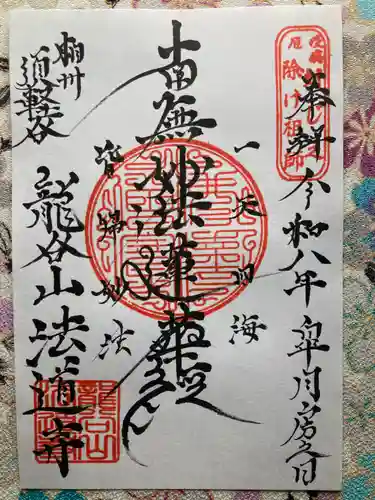 奉拝 令和八年皐月房之日
除け祖師
一天四海
南無妙法蓮華経
皆帰妙法
相州
道軽谷
龍谷山法道寺